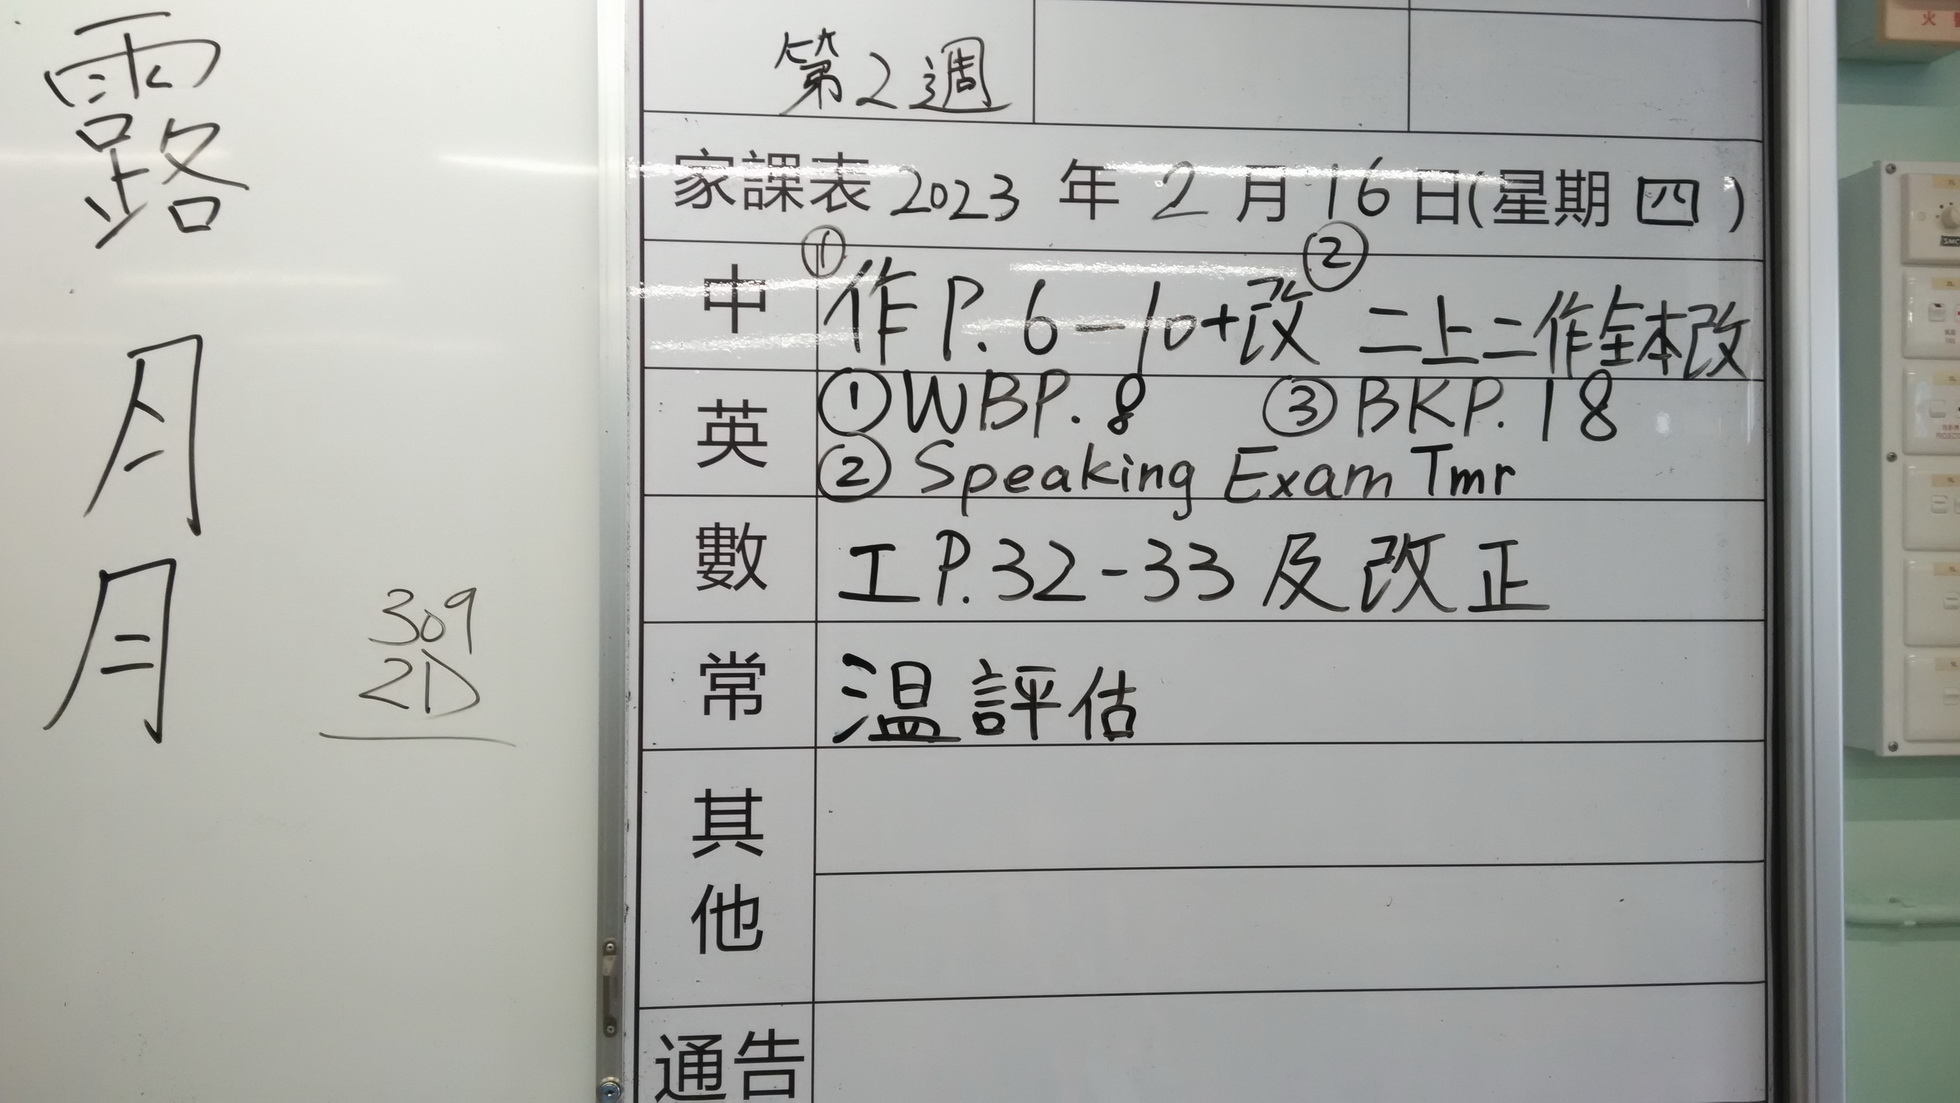 露
月
月
309
2D
第2週
家課表 2023 年 2 月 16 日(星期 四 )
中 ① 作 P. 6-10+改 ② 二上二作全本改
英 ① WBP. 8 ③ BKP. 18
② Speaking Exam Tmr
數 工 P. 32-33 及 改 正
常 温 評 估
其他
通告
火